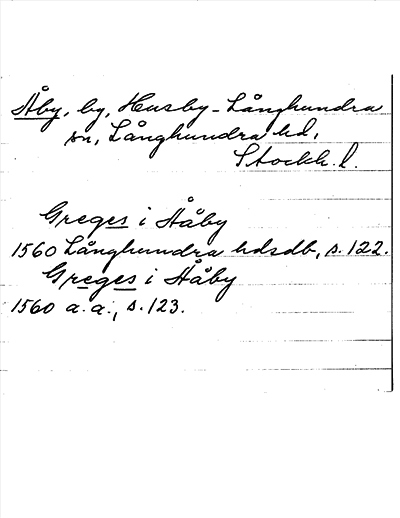 Åby, by, Husby-Långhundra
sn, Långhundra hd,
Stockh. l.
Greges i Åby
1560 Långhundra hdsdb, s. 122.
Greges i Åby
1560 a.a., s. 123.